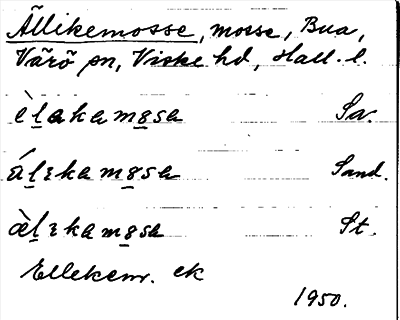 Ällikemosse, mosse, Bua,
Värö sn, Viske hd, Hall. l.
èḻakamo̱sa Sa.
áḻɛkamo̱sa Sand.
æ̀ḻɛkamo̱sa St.
Ellekem. ek
1950.